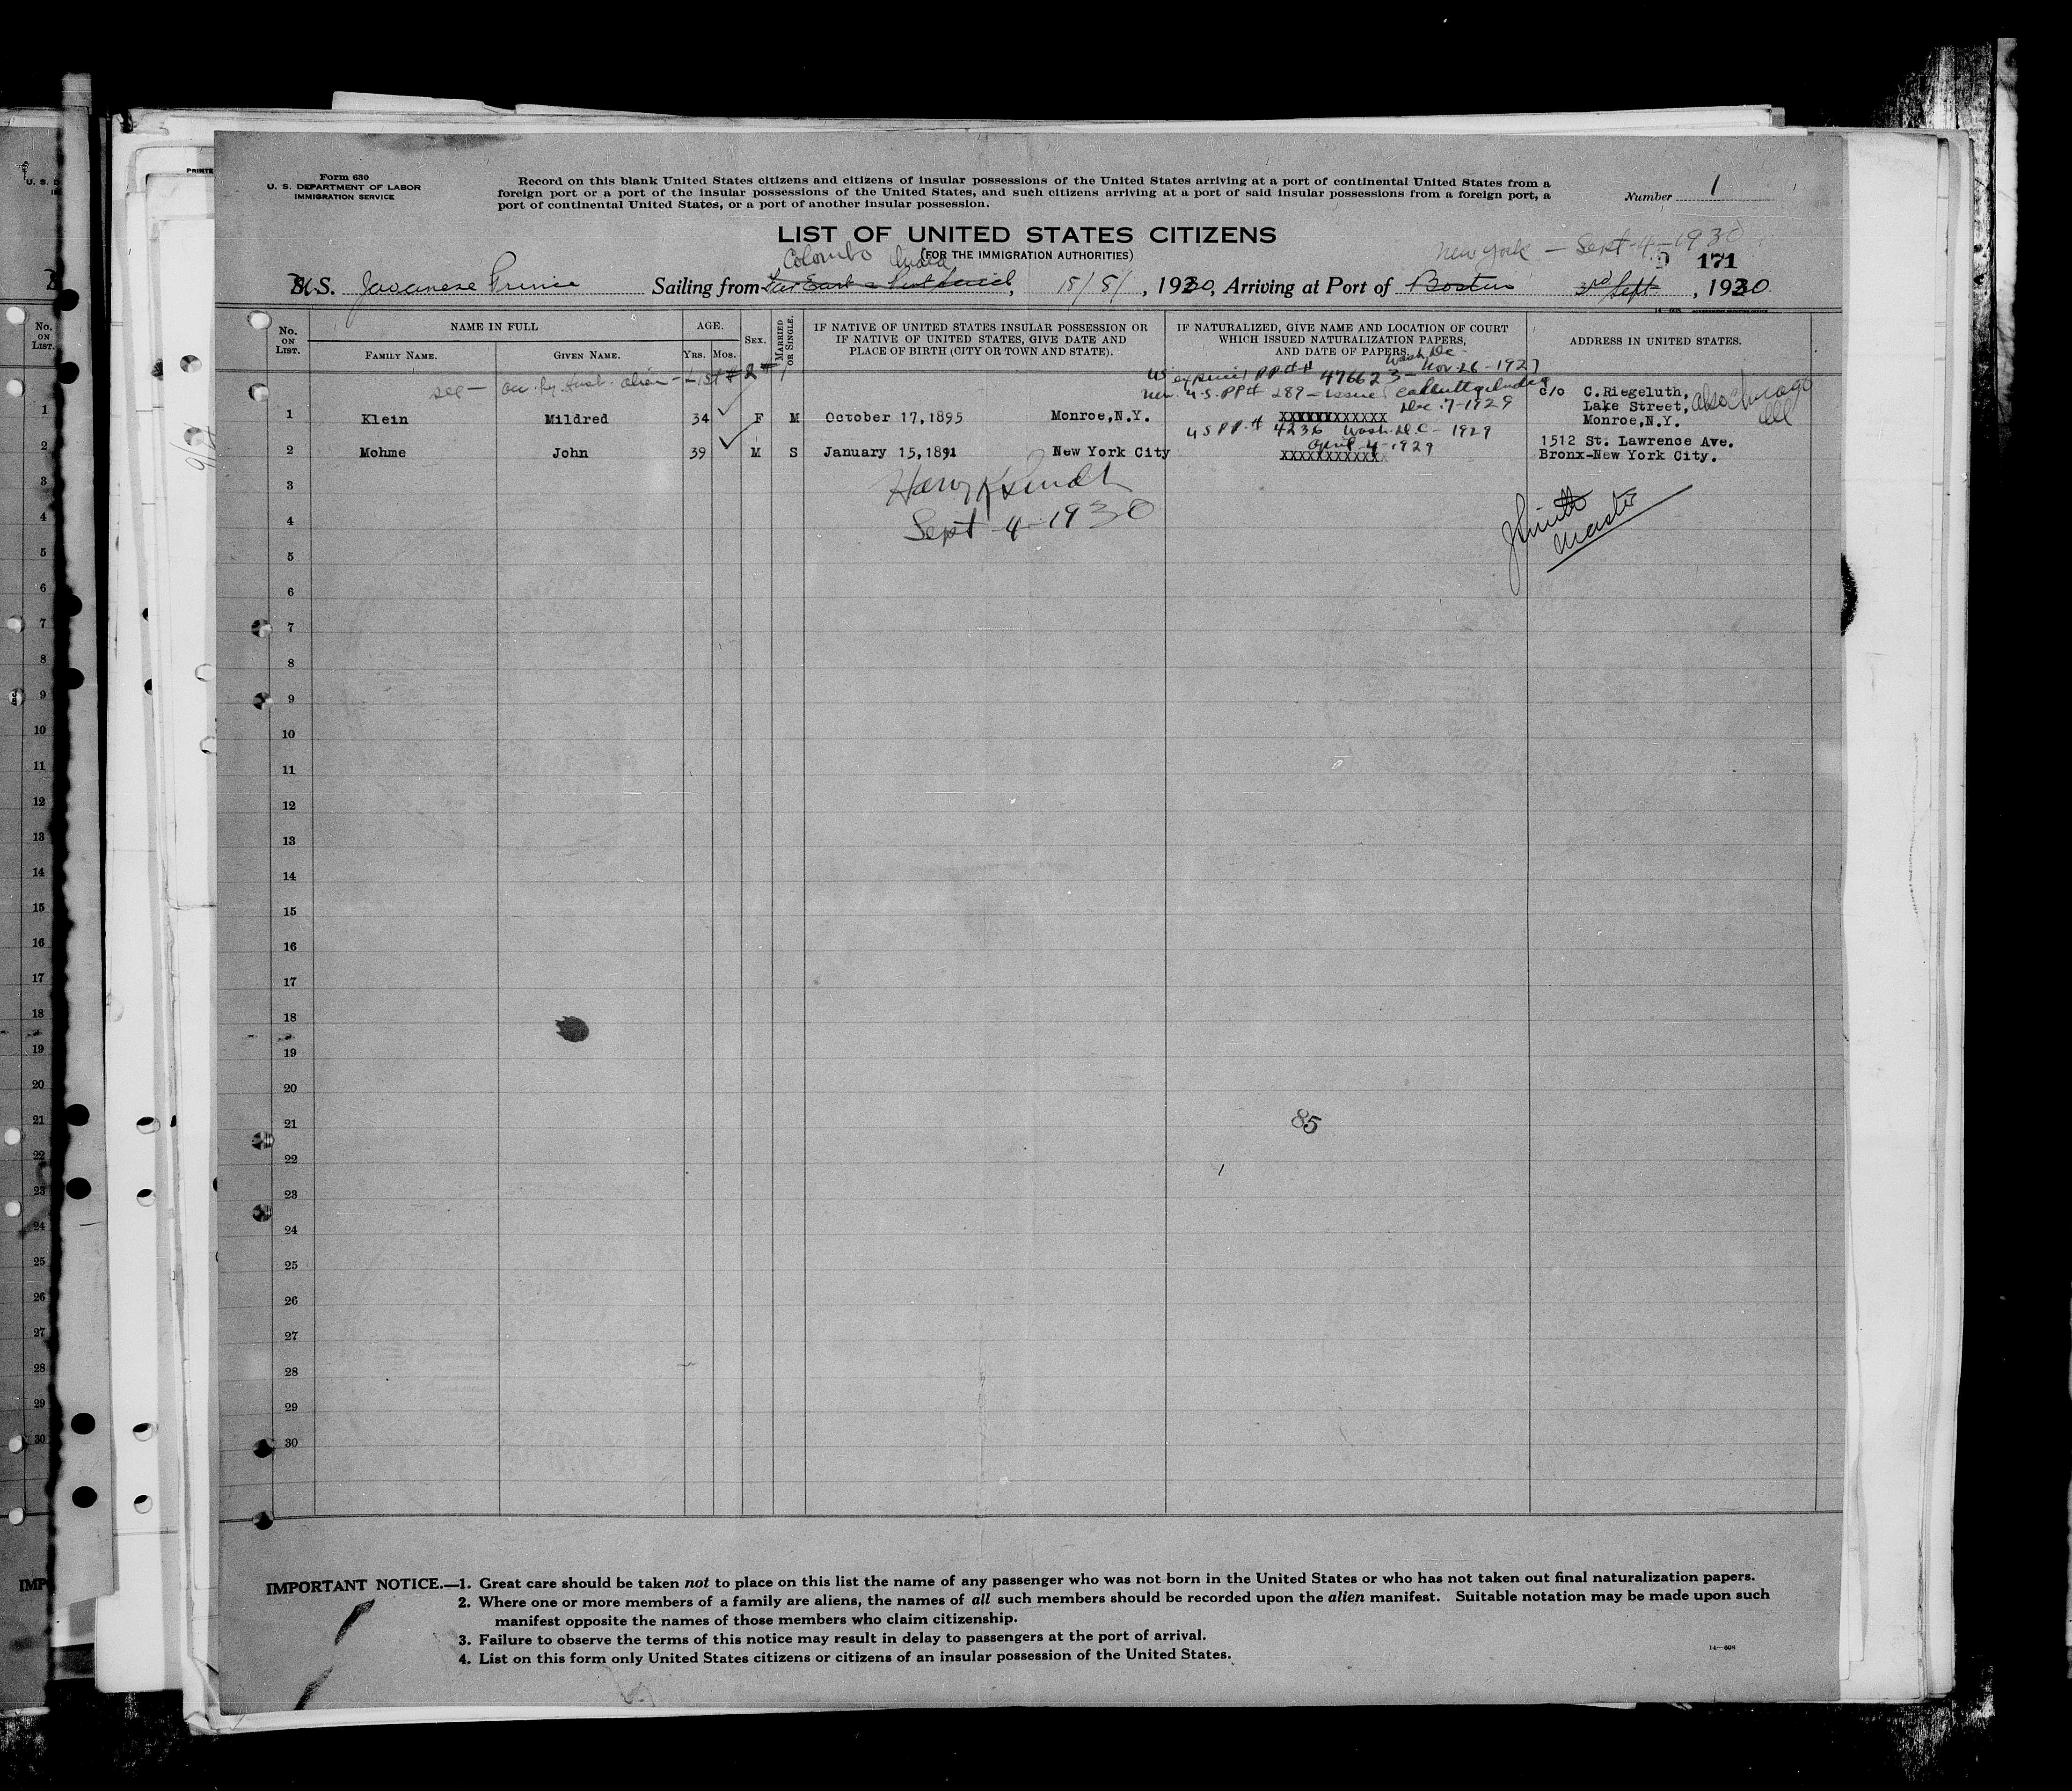 Form 630
U. S. DEPARTMENT OF LABOR
IMMIGRATION SERVICE
Record on this blank United States citizens and citizens of insular possessions of the United States arriving at a port of continental United States from a
foreign port or a port of the insular possessions of the United States, and such citizens arriving at a port of said insular possessions from a foreign port, a
port of continental United States, or a port of another insular possession.
Number 1
LIST OF UNITED STATES CITIZENS
(FOR THE IMMIGRATION AUTHORITIES)
New York — Sept-4-1930
171
Colombo India
S. Javanese Prince Sailing from Far East, 15/8/, 1930, Arriving at Port of Boston 3rd Sept., 1930
No. ON LIST.
NAME IN FULL
FAMILY NAME. GIVEN NAME.
AGE.
YRS. MOS.
SEX.
MARRIED OR SINGLE.
IF NATIVE OF UNITED STATES INSULAR POSSESSION OR
IF NATIVE OF UNITED STATES, GIVE DATE AND
PLACE OF BIRTH (CITY OR TOWN AND STATE).
IF NATURALIZED, GIVE NAME AND LOCATION OF COURT
WHICH ISSUED NATURALIZATION PAPERS,
AND DATE OF PAPERS.
ADDRESS IN UNITED STATES.
see — alien - List # 2 # 1
Wash, DC -
US expired PP # 476623 - Nov-26-1927
U.S. PP # 289 - issued Calcutta India
Dec. 7-1929
1 Klein Mildred 34 F M October 17,1895 Monroe,N.Y. XXXXXXXXXXXX
c/o C.Riegeluth,
Lake Street,
Monroe,N.Y.
also Chicago
Ill
US PP # 4236 Wash. D.C - 1929
April-4-1929
2 Mohme John 39 M S January 15,1891 New York City XXXXXXXXXXX
1512 St. Lawrence Ave.
Bronx-New York City.
Sept-4-1930
Master
3
4
5
6
7
8
9
10
11
12
13
14
15
16
17
18
19
20
21
22
23
24
25
26
27
28
29
30
85
IMPORTANT NOTICE.—1. Great care should be taken not to place on this list the name of any passenger who was not born in the United States or who has not taken out final naturalization papers.
2. Where one or more members of a family are aliens, the names of all such members should be recorded upon the alien manifest. Suitable notation may be made upon such
manifest opposite the names of those members who claim citizenship.
3. Failure to observe the terms of this notice may result in delay to passengers at the port of arrival.
4. List on this form only United States citizens or citizens of an insular possession of the United States.
14—608